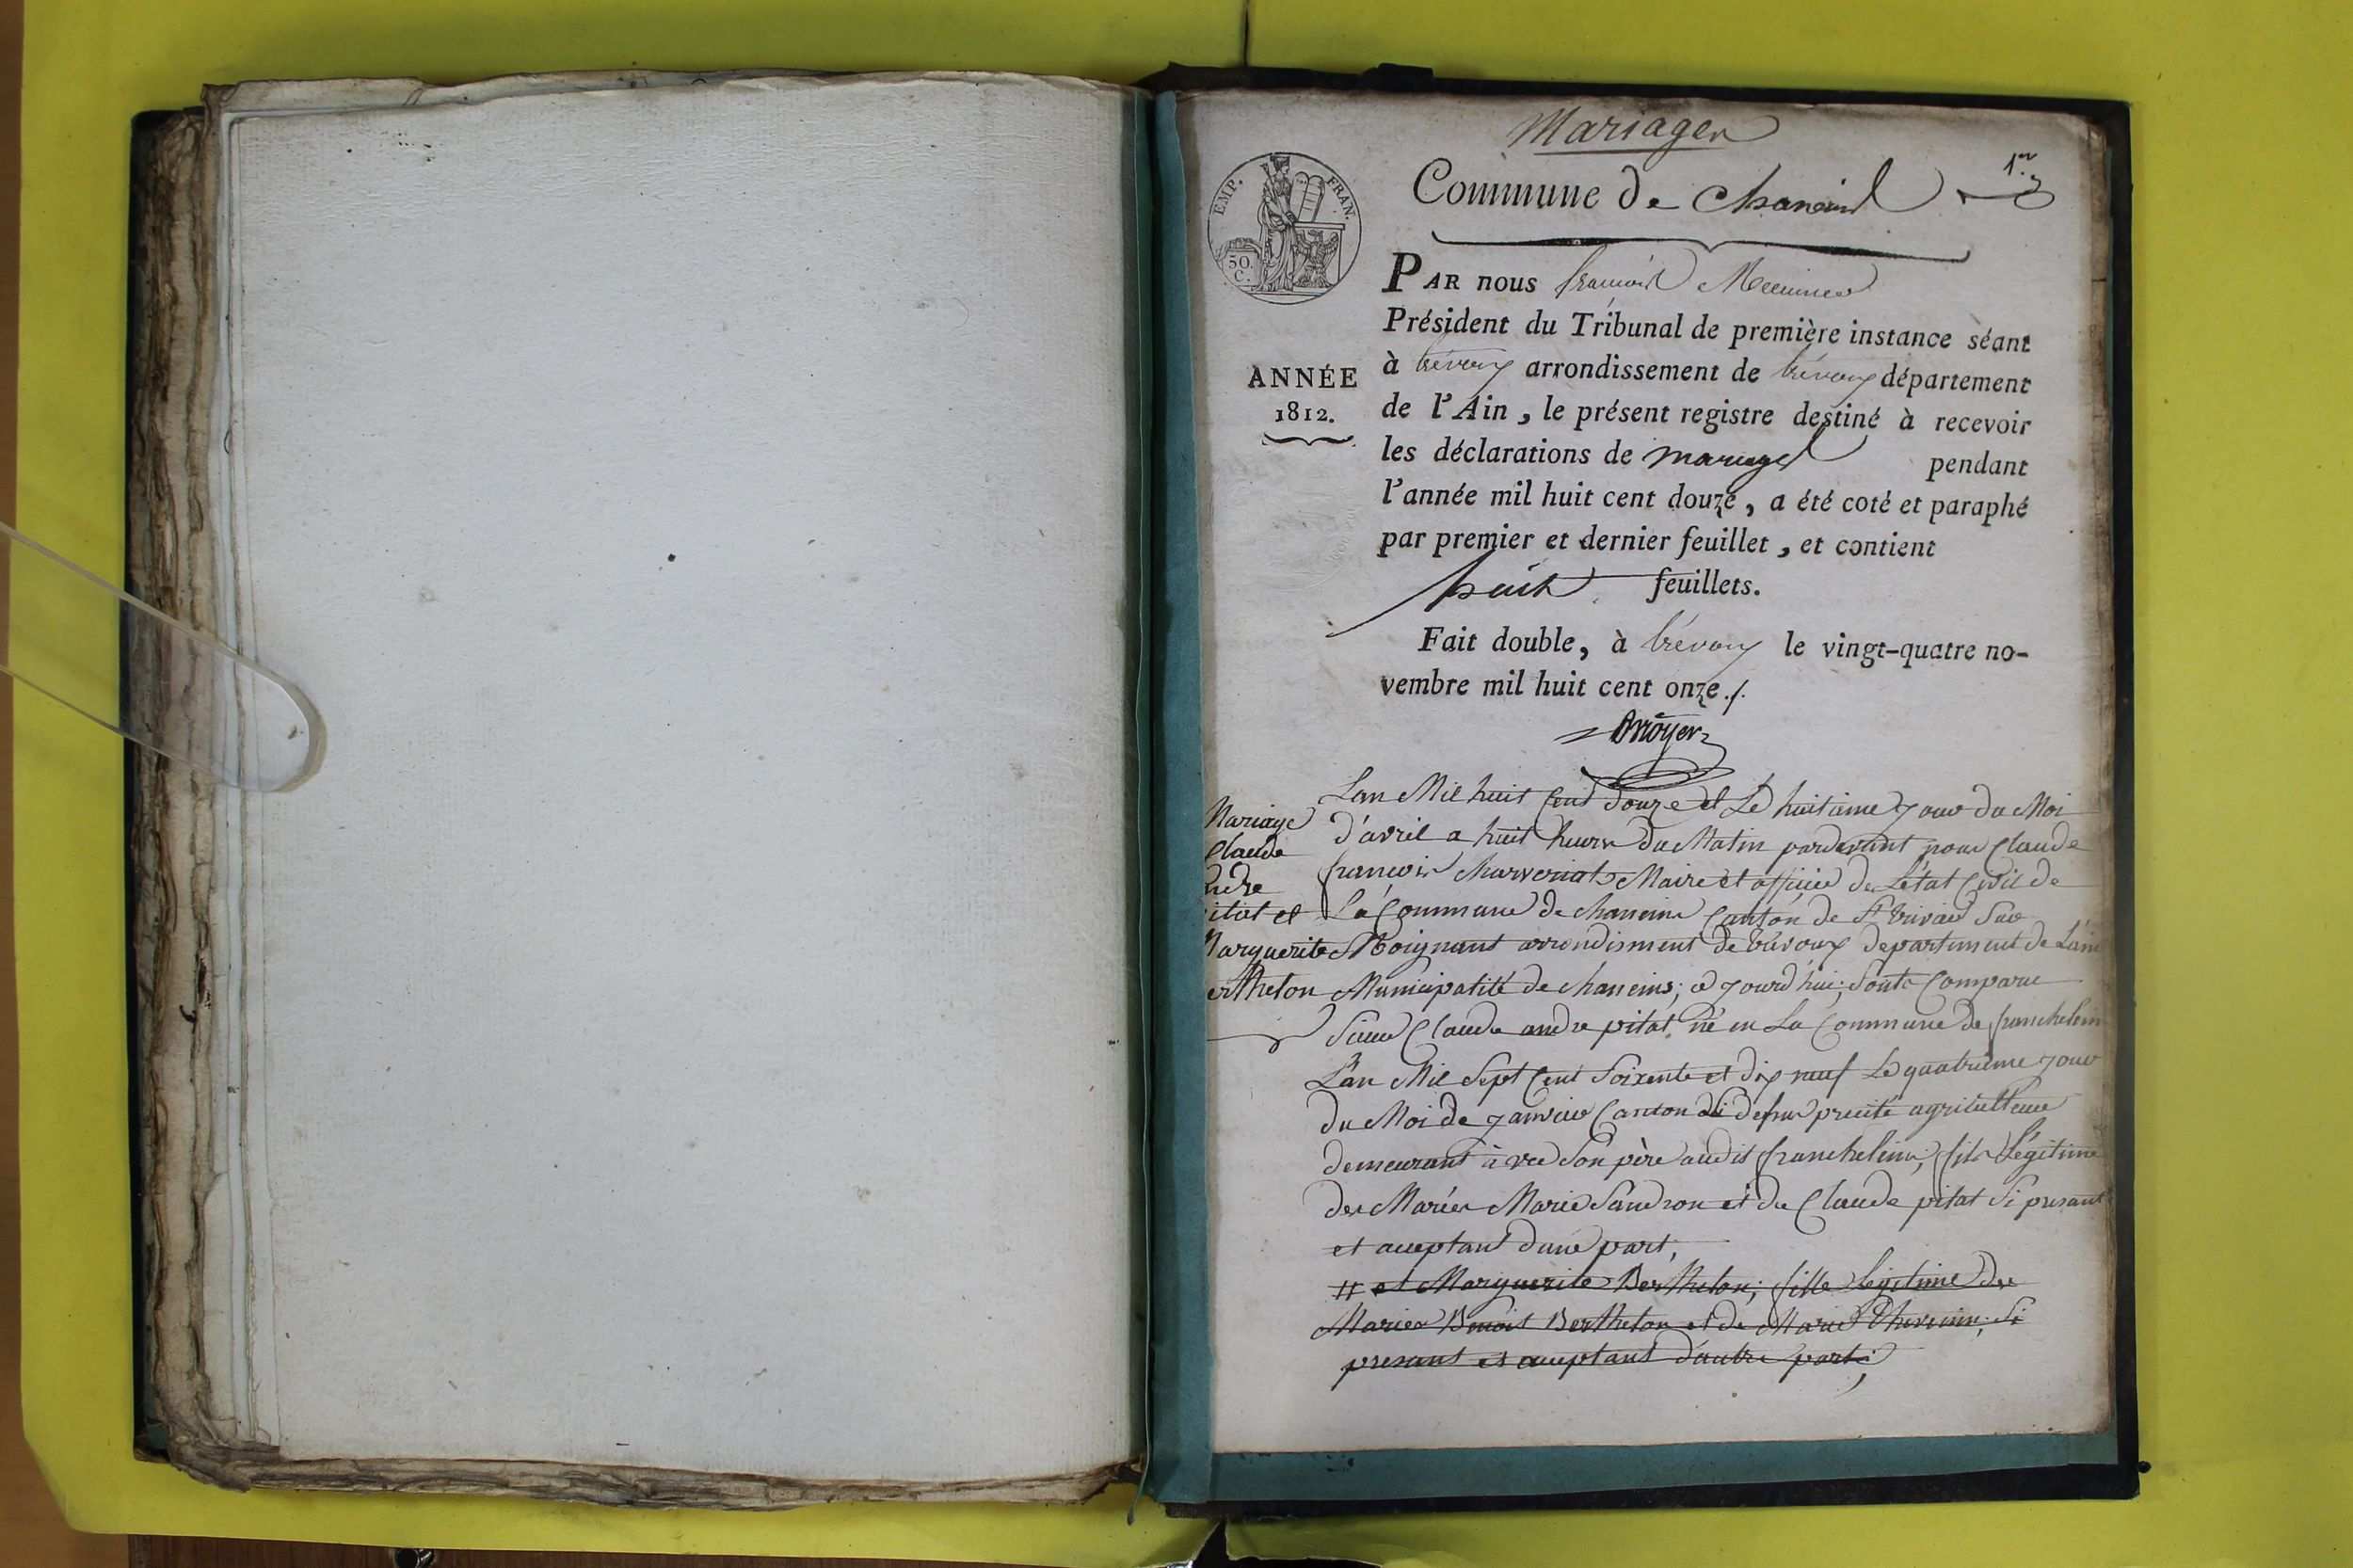 Mariages
1er
Commune de chaneins
EMP. FRAN.
50. C.
PAR nous françois
Président du Tribunal de première instance séant
à trévoux arrondissement de trévoux département
ANNÉE
1812.
de l'Ain, le présent registre destiné à recevoir
les déclarations de mariages pendant
l'année mil huit cent douze, a été coté et paraphé
par premier et dernier feuillet, et contient
huit feuillets.
Fait double, à trévoux le vingt-quatre no-
vembre mil huit cent onze./.
Mariage
Claude
ndre
itat et
Marguerite
erthelon
Lan Mil huit Cent douze et Le huitieme jour du Moi
d'avril a huit heures du Matin pardevant nous Claude
françois Charveriat Maire et officier de L'état Civil de
La Commune de chaneins Canton de St trivier Sur
Moignant arrondisment de trévoux departement de Lain
Municipalité de chaneins; ce jourd'hui; Sont Comparu
Sieur Claude andre pitat né en La Commune de franchelein
L'an Mil Sept Cent Soixente et dix neuf Le quatrieme jour
du Moi de janvier Canton precité agriculteur
demeurant avec Son père audit franchelein; fils Légitime
des Mariés Marie Sandron et de Claude pitat Si presant
et aceptant dune part,
et Marguerite Berthelon; fille legitime des
Mariés Benoit Berthelon et de Marie Si
presant et aceptant d'autre part;